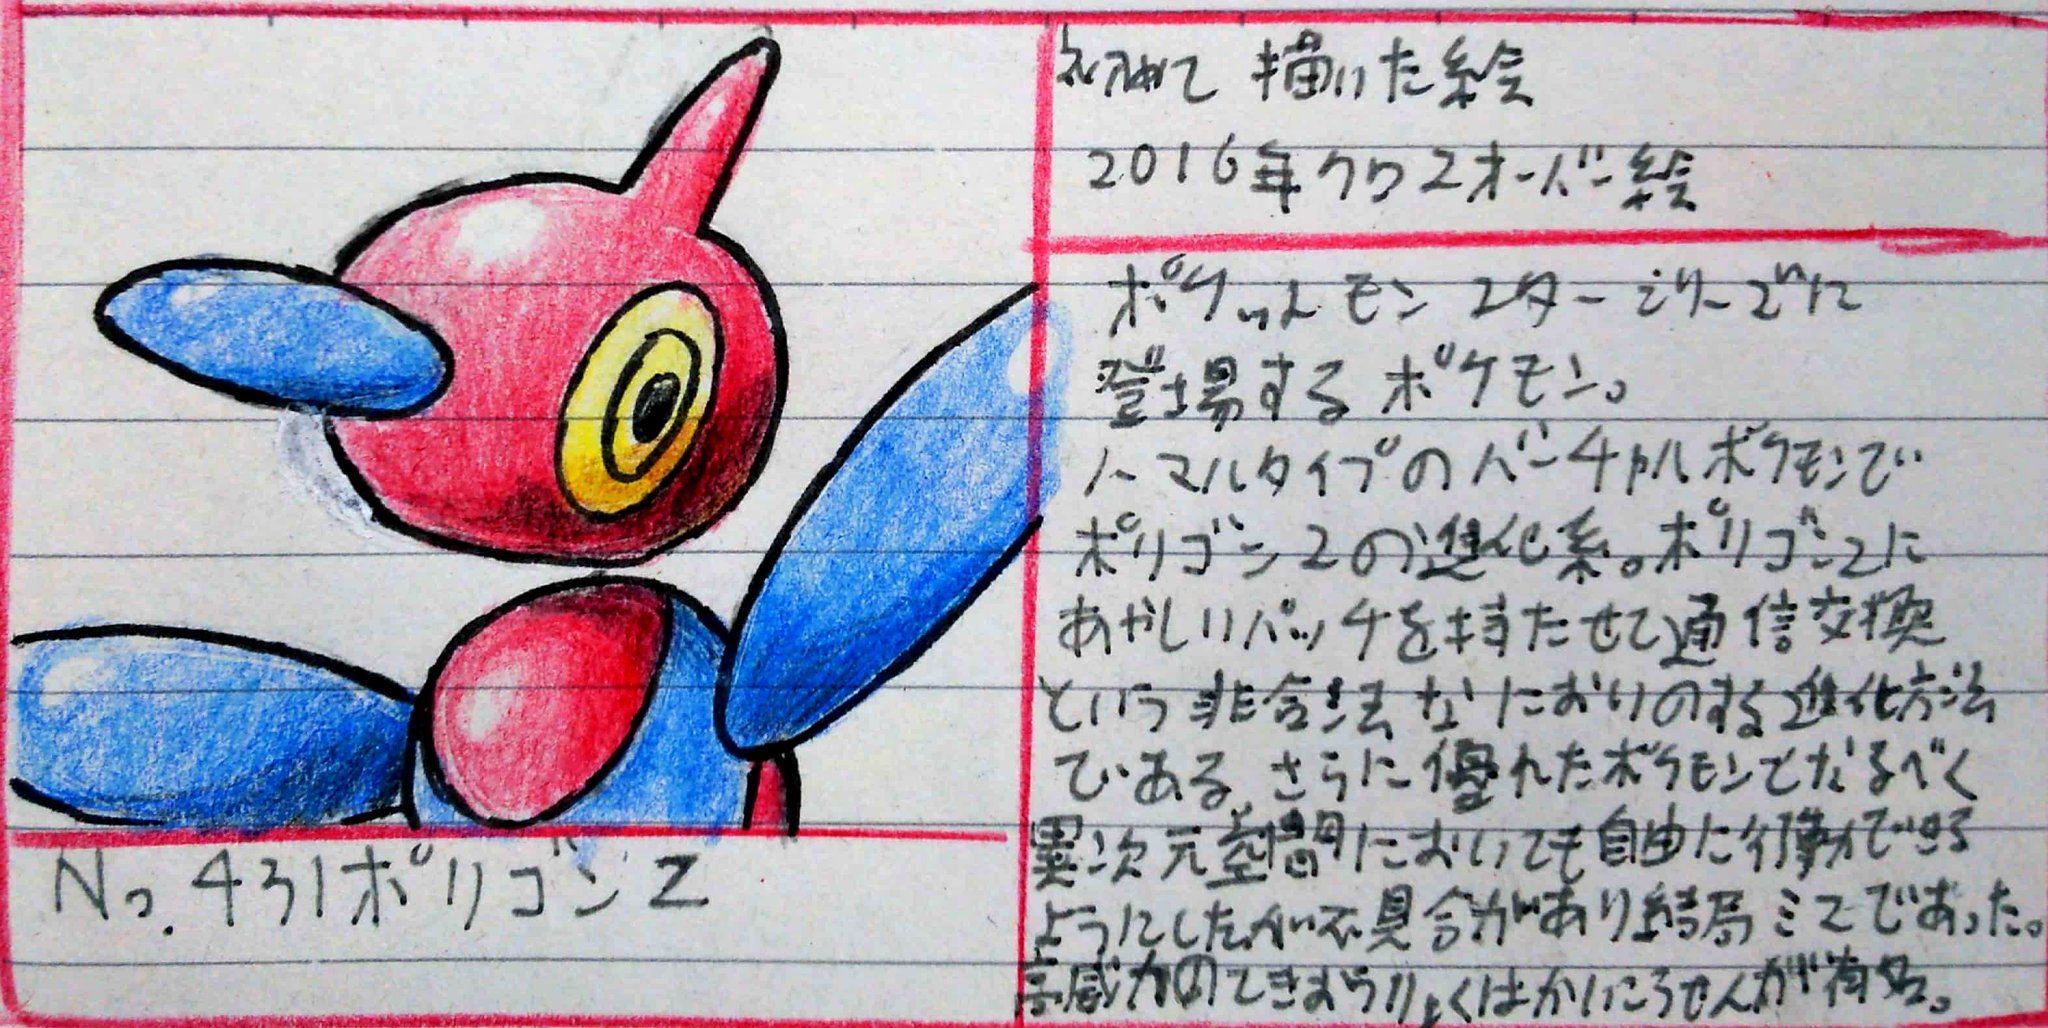 初めて描いた絵
2016年クロスオーバー絵
ポケットモンスターシリーズに
登場するポケモン。
ノーマルタイプのバーチャルポケモンで
ポリゴン2の進化系。ポリゴン2に
あやしいパッチを持たせて通信交換
という非合法なにおいのする進化方法
である。さらに優れたポケモンとなるべく
異次元空間においても自由に行動できる
ようにしたが不具合があり結局ミスであった。
高威力のてきおうりょくはかいこうせんが有名。
No.431ポリゴンZ